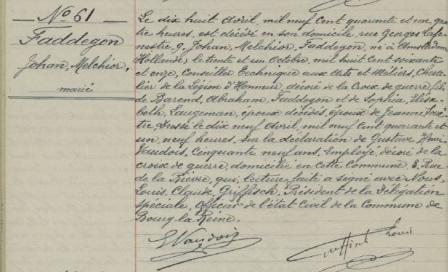 No 61
Faddegon
Johan, Melchior,
marié
Le dix huit Avril, mil neuf cent quarante et un, qua-
tre heures, est décédé en son domicile rue Georges Lafe-
nestre 9, Johan, Melchior, Faddegon, né à Amsterdam
(Hollande), le trente et un Octobre, mil huit cent soixante
et onze, Conseiller technique aux Arts et Métiers, Cheva-
lier de la Légion d'Honneur, décoré de la Croix de guerre, fils
de Barend, Abraham, Faddegon et de Sophia, Elisa-
beth, Laugeman, époux décédés, époux de Jeanne
Dressé le dix neuf Avril, mil neuf cent quarante et
un neuf heures, sur la déclaration de Gustave, Henri
Vaudois, Cinquante neuf ans, Employé, décoré de la
croix de guerre, domicilié en cette Commune 6, Rue
de la Bièvre, qui, lecture faite a signé avec Nous,
Louis, Claude Président de la Délégation
Spéciale, Officier de l'état Civil de la Commune de
Bourg-la-Reine.
G Vaudois